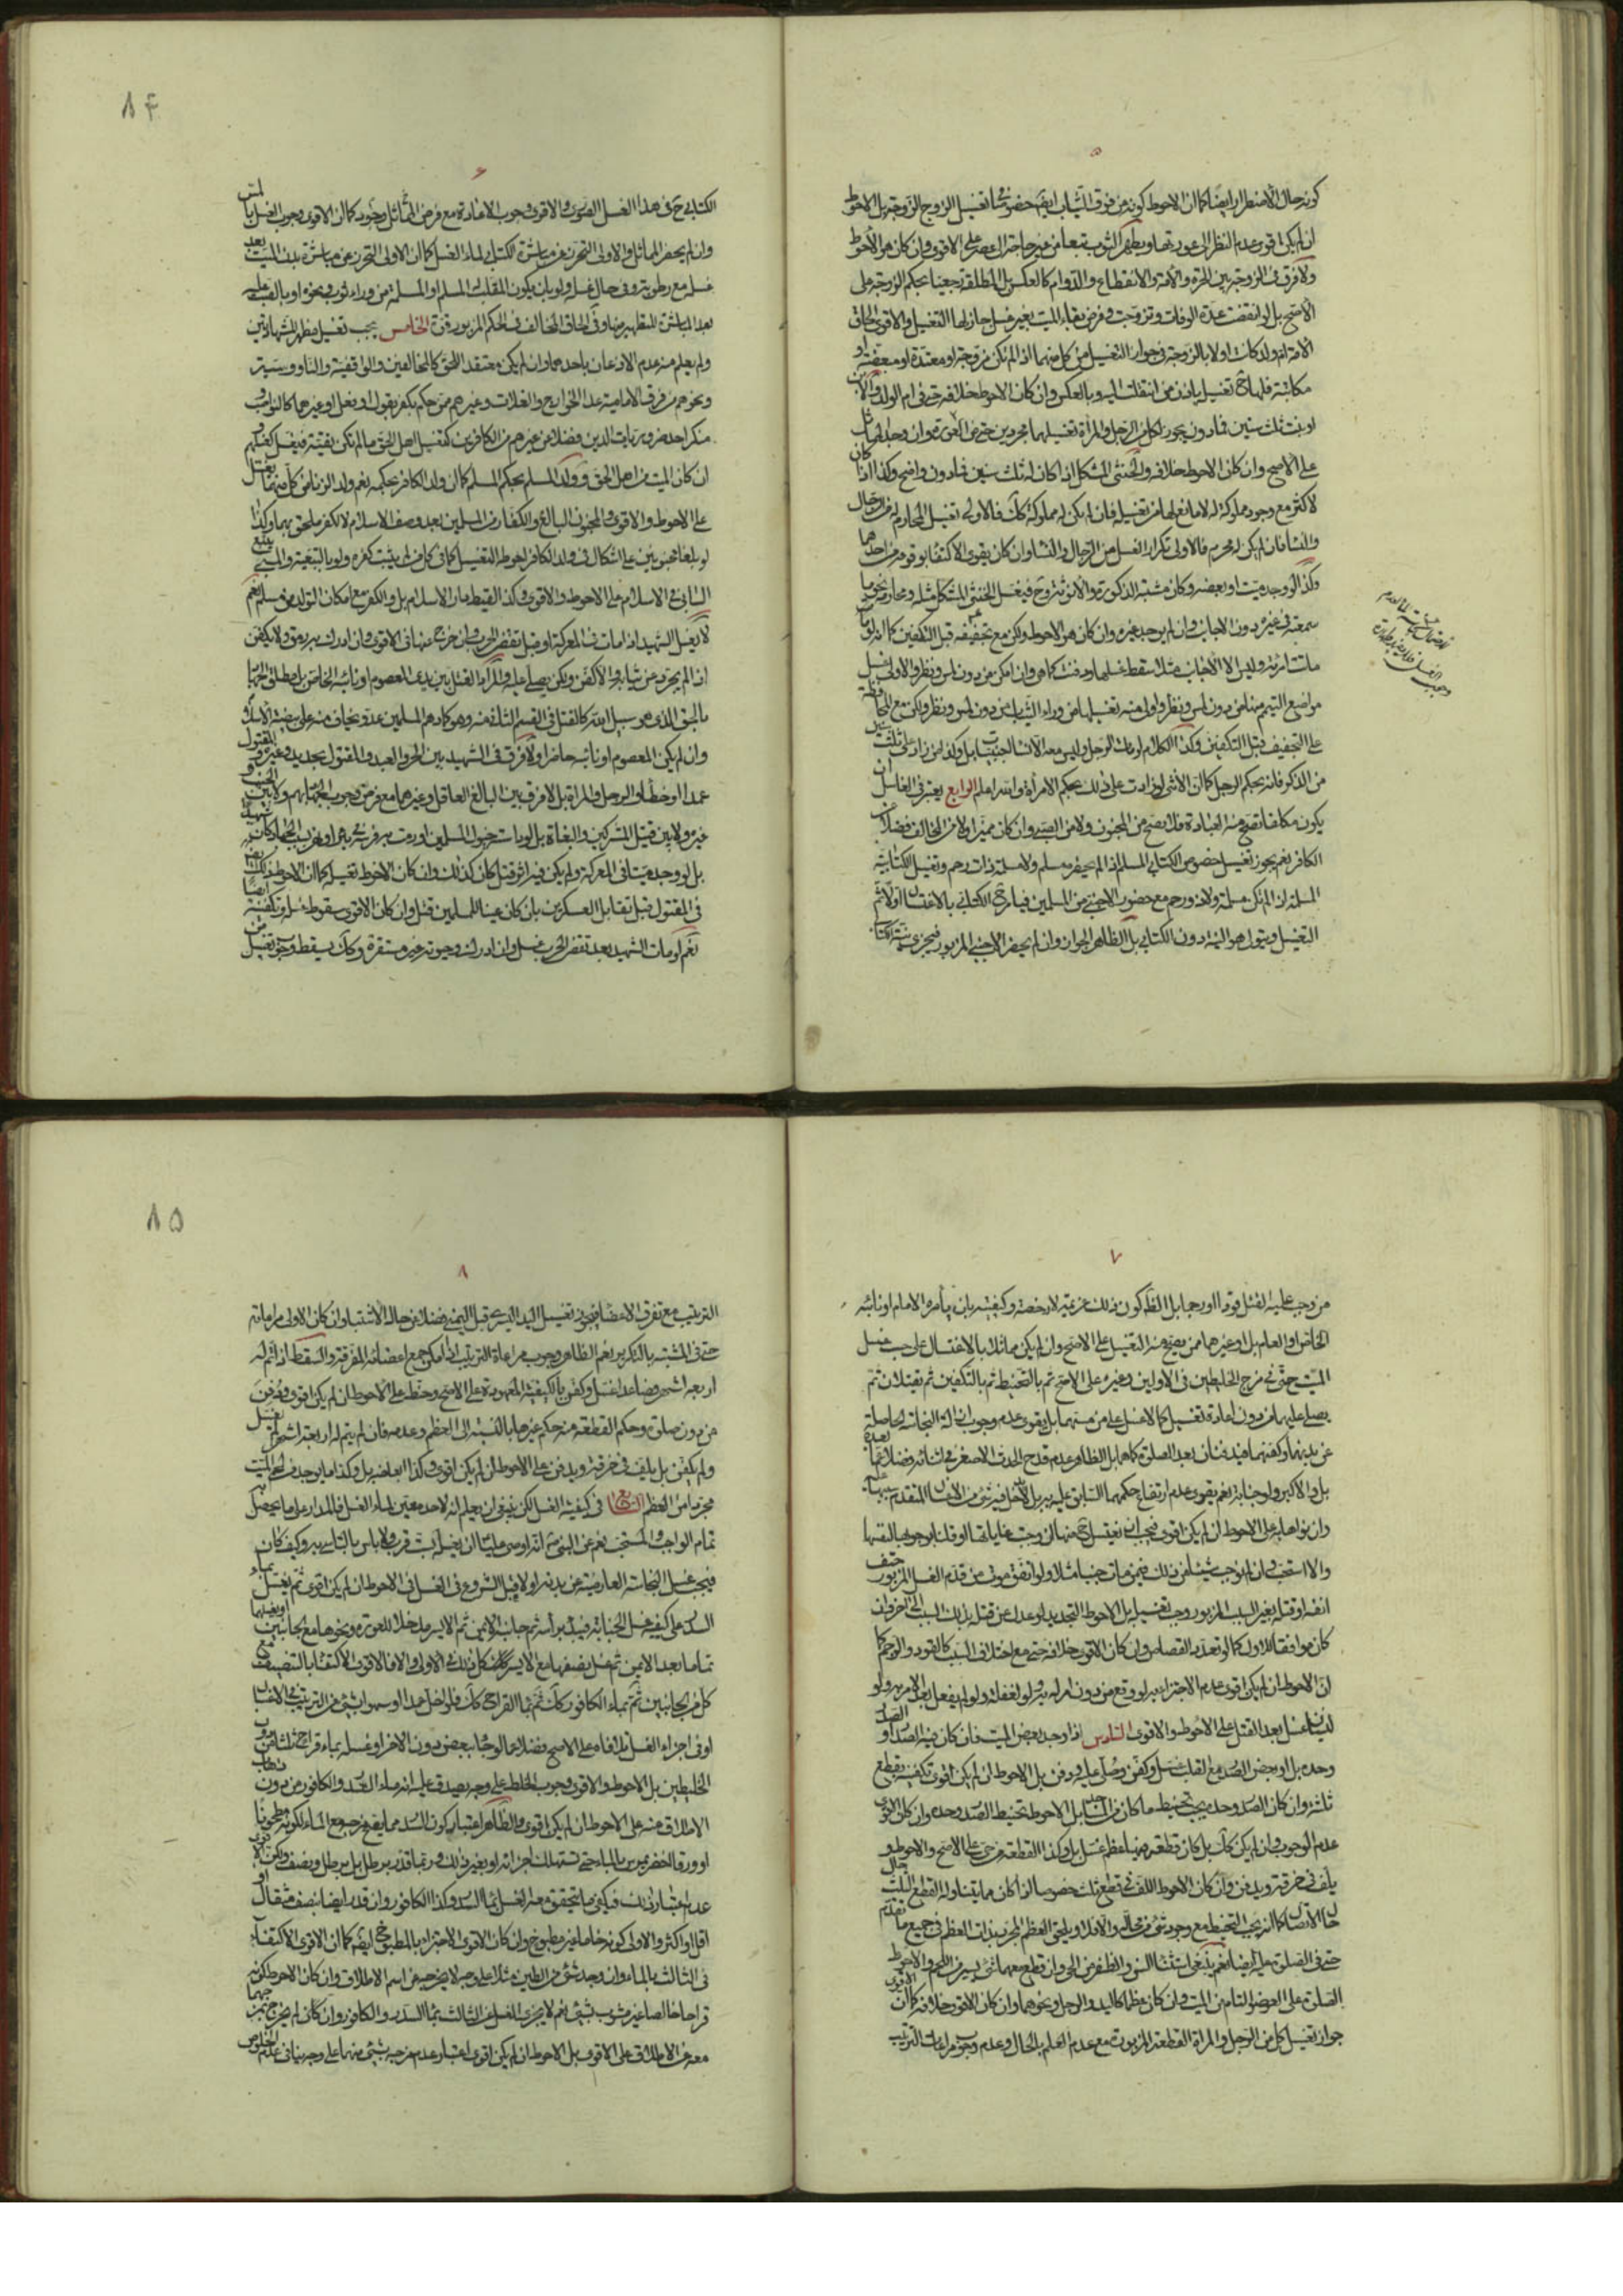 ٥
كونه حال الاضطرار ايضا كما ان الاحوط كونه من فوق الثياب ايضا خصوصا في تغسيل الزوج الزوجة بل الاحوط
ان لم يكن اقوى عدم النظر الى عورتها ويطهر الثوب تبعا من غير حاجة الى عصر على الاقوى وان كان هو الاحوط
ولا فرق في الزوجة بين الحرة والامة والانقطاع والدوام كالعكس بل المطلقة رجعيا بحكم الزوجة على
الاصح بل لو انقضت عدة الوفات وتزوجت وفرض بقاء الميت بغير غسل جاز لها التغسيل والاقوى الحاق
الامة ام ولد كانت اولا بالزوجة في جواز التغسيل من كل منهما اذا لم تكن مزوجة او معتدة او مبعضة او
مكاتبة فلها تغسيله باذن من انتقلت اليه وبالعكس وان كان الاحوط خلافه حتى في ام الولد والابن
او بنت ثلث سنين فما دون يجوز لكل من الرجل والمرأة تغسيلهما مجردين حتى من العورة وان وجد المماثل
على الاصح وان كان الاحوط خلافه والخنثى المشكل اذا كان له ثلث سنين فما دون واضح وكذا اذا كان
لاكثر مع وجود مملوكة له لا مانع لها من تغسيله فان لم يكن له مملوكة كك فالاولى تغسيل المحارم له من الرجال
والنساء فان لم يكن له محرم فالاولى تكرار الغسل من الرجال والنساء وان كان يقوى الاكتفاء بوقوعه من احدهما
وكذا لو وجد ميت او بعضه وكان مشتبه الذكورة والانوثة
سمعته في غيره دون الاجانب وان لم يوجد غيره وان كان هو الاحوط ولكن مع تجفيفه قبل التكفين كما انه لو
ماتت امرأة وليس الا الاجانب مثلا سقط غسلها ودفنت كما هي وان امكن من دون لمس ونظر والاولى غسل
مواضع التيمم منها من دون لمس ونظر واولى منه تغسيلها من وراء الثياب من دون لمس ونظر ولكن مع المحافظة
على التجفيف قبل التكفين وكذا الكلام لو مات الرجل وليس معه الا النساء الاجنبيات بل وكذا من زاد على ثلث سنين
من الذكور فانه بحكم الرجل كما ان الانثى لو زادت على ذلك بحكم الامرأة والله اعلم الرابع يعتبر في الغاسل ان
يكون مكلفا تصح منه العبادة فلا يصح من المجنون ولا من الصبي وان كان مميزا ولا من المخالف فضلا عن
الكافر نعم يجوز تغسيل خصوص الكتابي المسلم اذا لم يحضره مسلم ولا مسلمة ذات رحم وتغسيل الكتابية
المسلمة ان لم تكن مسلمة ولا ذو رحم مع حضور الاجنبي من المسلمين فيامر الكتابي بالاغتسال اولا ثم
التغسيل ويتولى هو النية دون الكتابي بل الظاهر الجواز وان لم يحضر الاجنبي المزبور فيجزي نية الكتابي
٨٤
٦
الكتابي ح في هذا الغسل الصوري والاقوى وجوب الاعادة مع فرض المماثل وجوده كما ان الاقوى وجوب الغسل بالمس
وان لم يحضر المماثل والاولى التحرز عن مباشرة الكتابي لماء الغسل كما ان الاولى التحرز عن مباشرة بدن الميت بعد
غسله مع رطوبته وفي حال غسله ولو بان يكون المقلب له المسلم او المسلمة من وراء ثوب ونحوه
بعد المباشرة للتطهير منها وفي الحاق المخالف في الحكم المزبور قوة الخامس يجب تغسيل مظهر الشهادتين
ولم يعلم منه عدم الاذعان باحدهما وان لم يكن معتقد الحق كالمخالفين والواقفية والناووسية
ونحوهم من فرق الامامية عدا الخوارج والغلات وغيرهم ممن حكم بكفره بقول او بفعل او غيرهما كالنواصب و
منكر احد ضروريات الدين وفضلا عن غيرهم من الكافرين كتغسيل اهل الحق ما لم تكن تقية فيغسل كغسلهم
ان كان الميت من اهل الحق وولد المسلم بحكم المسلم كما ان ولد الكافر بحكمه نعم ولد الزنا من كل منهما يغسل
على الاحوط والاقوى والمجنون البالغ
لو بلغا مجنونين على اشكال في ولد الكافر احوطه التغسيل كما في كل من لم يثبت كفره ولو بالتبعية والمسبي يتبع
السابي في الاسلام على الاحوط والاقوى وكذا لقيط دار الاسلام بل والكفر مع امكان التولد من مسلم نعم
لا يغسل الشهيد اذا مات في المعركة او قبل تقضي الحرب وان خرج عنها في الاقوى وان ادرك به رمق ولا يكفن
اذا لم يجرد عن ثيابه والا كفن ولكن يصلى عليه والمراد القتل بين يدي المعصوم او نائبه الخاص بل مطلق الجهاد
بالحق الذي هو سبيل الله كالقتل في القسم الثالث منه وهو كما دهم المسلمين عدو يخاف منه على بيضة الاسلام
وان لم يكن المعصوم او نائبه حاضرا ولا فرق في الشهيد بين الحر والعبد والمقتول بحديد وغيره والمقتول
عمدا او خطأ والرجل والمرأة بل لا فرق بين البالغ العاقل وغيرهما مع فرض وجوب الجهاد بهم ولا بين الجنب و
غيره ولا بين قتيل المشركين والبغاة
بل لو وجد ميتا في المعركة ولم يكن فيه اثر قتل كان كذلك وان كان الاحوط تغسيله كما ان الاحوط ذلك ايضا
في المقتول قبل تقابل العسكرين بان كان عينا للمسلمين فقتل وان كان الاقوى سقوط غسله وتكفينه ايضا
نعم لو مات الشهيد بعد تقضي الحرب غسل وان ادرك وحيوته غير مستقرة وكك يسقط وجوب تغسيل من
٧
من وجب عليه القتل قودا او رجما بل الظاهر كون ذلك عزيمة لا رخصة وكيفيته بان يأمره الامام او نائبه
الخاص او العام بل او غيرهما ممن يصح منه التغسيل على الاصح وان لم يكن مماثلا بالاغتسال على حسب غسل
الميت حتى في مزج الخليطين في الاولين وغيره على الاصح ثم بالتحنيط ثم بالتكفين ثم يقتلان ثم
يصلى عليهما من دون اعادة تغسيل كما لا غسل على من مسهما بل يقوى عدم وجوب ازالة النجاسة الحاصلة
عن بدنهما وكفنهما فيدفنان بعد الصلوة كما هما بل الظاهر عدم قدح الحدث الاصغر في اثنائه فضلا عما بعده
بل والاكبر ولو جنابة نعم يقوى عدم ارتفاع حكمهما السابق عليه
وان نواها به على الاحوط ان لم يكن اقوى
والا استحب وان لم يوجب شيئا من ذلك فيمن مات جنبا مثلا ولو اتفق موت من قدم الغسل المزبور حتف
انفه او قتله بغير السبب المزبور وجب تغسيله بل الاحوط التجديد لو عدل عن قتله بذلك السبب الى اخر وان
كان موافقا للاول كما لو تعدد القصاص وان كان الاقوى خلافه حتى مع اختلاف السبب كالقود والرجم كما
ان الاحوط ان لم يكن اقوى عدم الاجتزاء به لو وقع من دون امر له به ولو لغفلة ولو لم يفعل بعد الامر به ولو
لنسيان غسل بعد القتل على الاحوط والاقوى السادس اذا وجد بعض الميت فان كان فيه الصدر او الصدر
وحده بل او بعض الصدر مع القلب غسل وكفن وصلي عليه ودفن بل الاحوط ان لم يكن اقوى تكفينه بقطع
ثلثة وان كان الصدر وحده يجب تحنيط ما كان من المساجد بل الاحوط تحنيط الصدر وحده وان كان الاقوى
عدم الوجوب وان لم يكن كك بل كان قطعة فيها عظم غسل بل وكذا القطعة من حي على الاصح والاحوط و
يلف في خرقة ويدفن وان كان الاحوط اللف في قطع ثلث خصوصا اذا كان مما يتناوله القطع الثلث حال
حال الاتصال كما انه يجب التحنيط مع وجود شيء من محاله والا فلا ويلحق العظم المجرد بذات العظم في جميع ما تقدم
حتى في الصلوة عليه ايضا نعم ينبغي استثناء السن والظفر من الحي وان قطع معهما شيء يسير من اللحم والاحوط
الصلوة على العضو التام من الميت وان كان عظما كاليد والرجل ونحوهما وان كان الاقوى خلافه كما ان الاقوى
جواز تغسيل كل من الرجل والمرأة القطعة المزبورة مع عدم العلم بالحال وعدم وجوب مراعات الترتيب
٨٥
٨
الترتيب مع تفرق الاعضاء فيجوز تغسيل اليد اليسرى قبل اليمنى فضلا عن حالة الاشتباه وان كان الاولى مراعاته
حتى في المشتبه بالتكرير نعم الظاهر وجوب مراعاة الترتيب اذا امكن جمع اعضائه المفرقة والسقط اذا تم له
اربعة اشهر فصاعدا غسل وكفن بالكيفية المعهودة على الاصح وحنط على الاحوط ان لم يكن اقوى ودفن
من دون صلوة وحكم القطعة منه حكم غيرها بالنسبة الى العظم وعدمه فان لم يتم له اربعة اشهر لم يغسل
ولم يكفن بل يلف في خرقة ويدفن على الاحوط ان لم يكن اقوى وكذا ابعاضه بل وكذا ما يوجد من لحم الميت
مجردا من العظم السابع في كيفية الغسل لكن ينبغي ان يعلم انه لا حد معين لماء الغسل فالمدار على ما يحصل به
تمام الواجب والمستحب نعم عن النبي ص انه اوصى عليا ان يغسله بست قرب ولا باس بالتاسي به وكيف كان
فيجب غسل النجاسة العارضة عن بدنه اولا قبل الشروع في الغسل في الاحوط ان لم يكن اقوى ثم يغسل بماء
السدر على كيفية غسل الجنابة فيبدء براسه ثم جانبه الايمن ثم الايسر مدخلا للعورة ونحوها مع الجانبين او يغسلها
تماما بعد الايمن ثم يغسل نصفها مع الايسر وان كان ذلك هو الاولى والا فالاقوى الاكتفاء بالتنصيف مع
كل من الجانبين ثم بماء الكافور كك ثم بماء القراح كك فلو اخل عمدا او سهوا بشيء من الترتيب في الاغسال
او في اجزاء الغسل تلافاه على الاصح
الخليطين بل الاحوط والاقوى وجوب الخلط على وجه يصدق عليه انه ماء السدر والكافور من دون ذهاب
الاطلاق منه على الاحوط ان لم يكن اقوى والظاهر اعتبار كون السدر مما يقع مزجه مع الماء لكونه مطحونا
او ورقا اخضر يمرس بالماء حتى تستهلك اجزائه او بغير ذلك وربما قدر برطل بل برطل ونصف ولكن الاقوى
عدم اعتبار ذلك فيكفي ما يتحقق معه الغسل بماء السدر وكذا الكافور وان قدر ايضا بنصف مثقال او
اقل او اكثر والاولى كونه خاما غير مطبوخ وان كان الاقوى الاجتزاء بالمطبوخ ايضا كما ان الاقوى الاكتفاء
في الثالث بالماء وان وجد شيء من الطين مثلا على وجه لا يخرجه عن اسم الاطلاق وان كان الاحوط كونه
قراحا خالصا غير مشوب بشيء نعم لا يجزي الغسل عن الثالث بماء السدر والكافور وان كان لم يخرج بمزجهما
معه عن الاطلاق على الاقوى بل الاحوط ان لم يكن اقوى اعتبار عدم مزجه بشيء منهما على وجه ينافي علم الخلوص